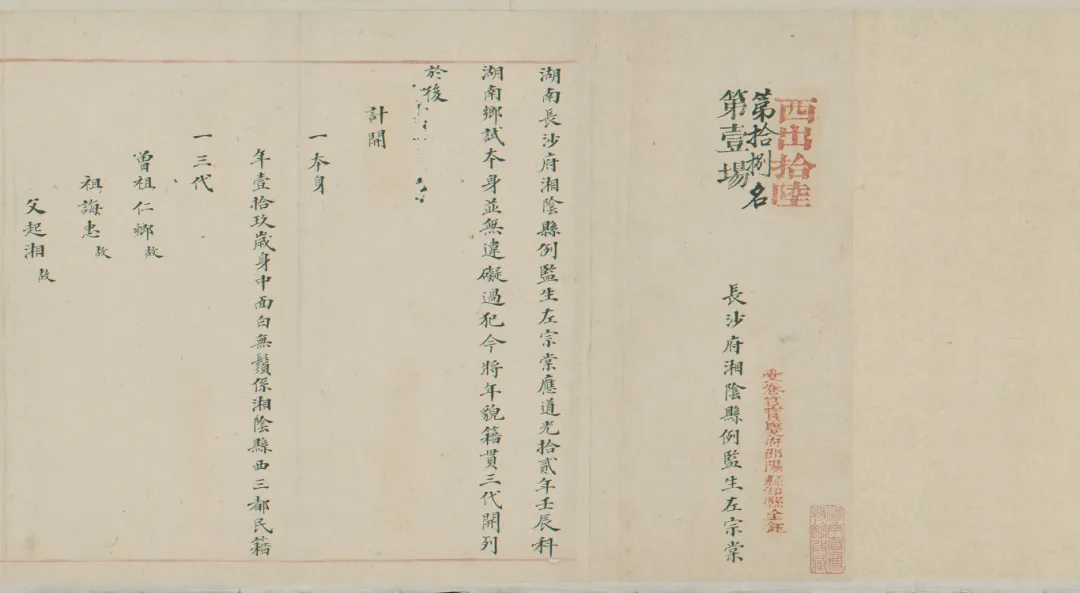 西出拾陸
第拾捌名
第壹場
受卷官寶慶府邵陽縣知縣全
長沙府湘陰縣例監生左宗棠
湖南長沙府湘陰縣例監生左宗棠應道光拾貳年壬辰科
湖南鄉試本身並無違礙過犯今將年貌籍貫三代開列
於後
計開
一本身
年壹拾玖歲身中面白無鬚係湘陰縣西三都民籍
一三代
曾祖仁鄉故
祖誨惠故
父起湘故